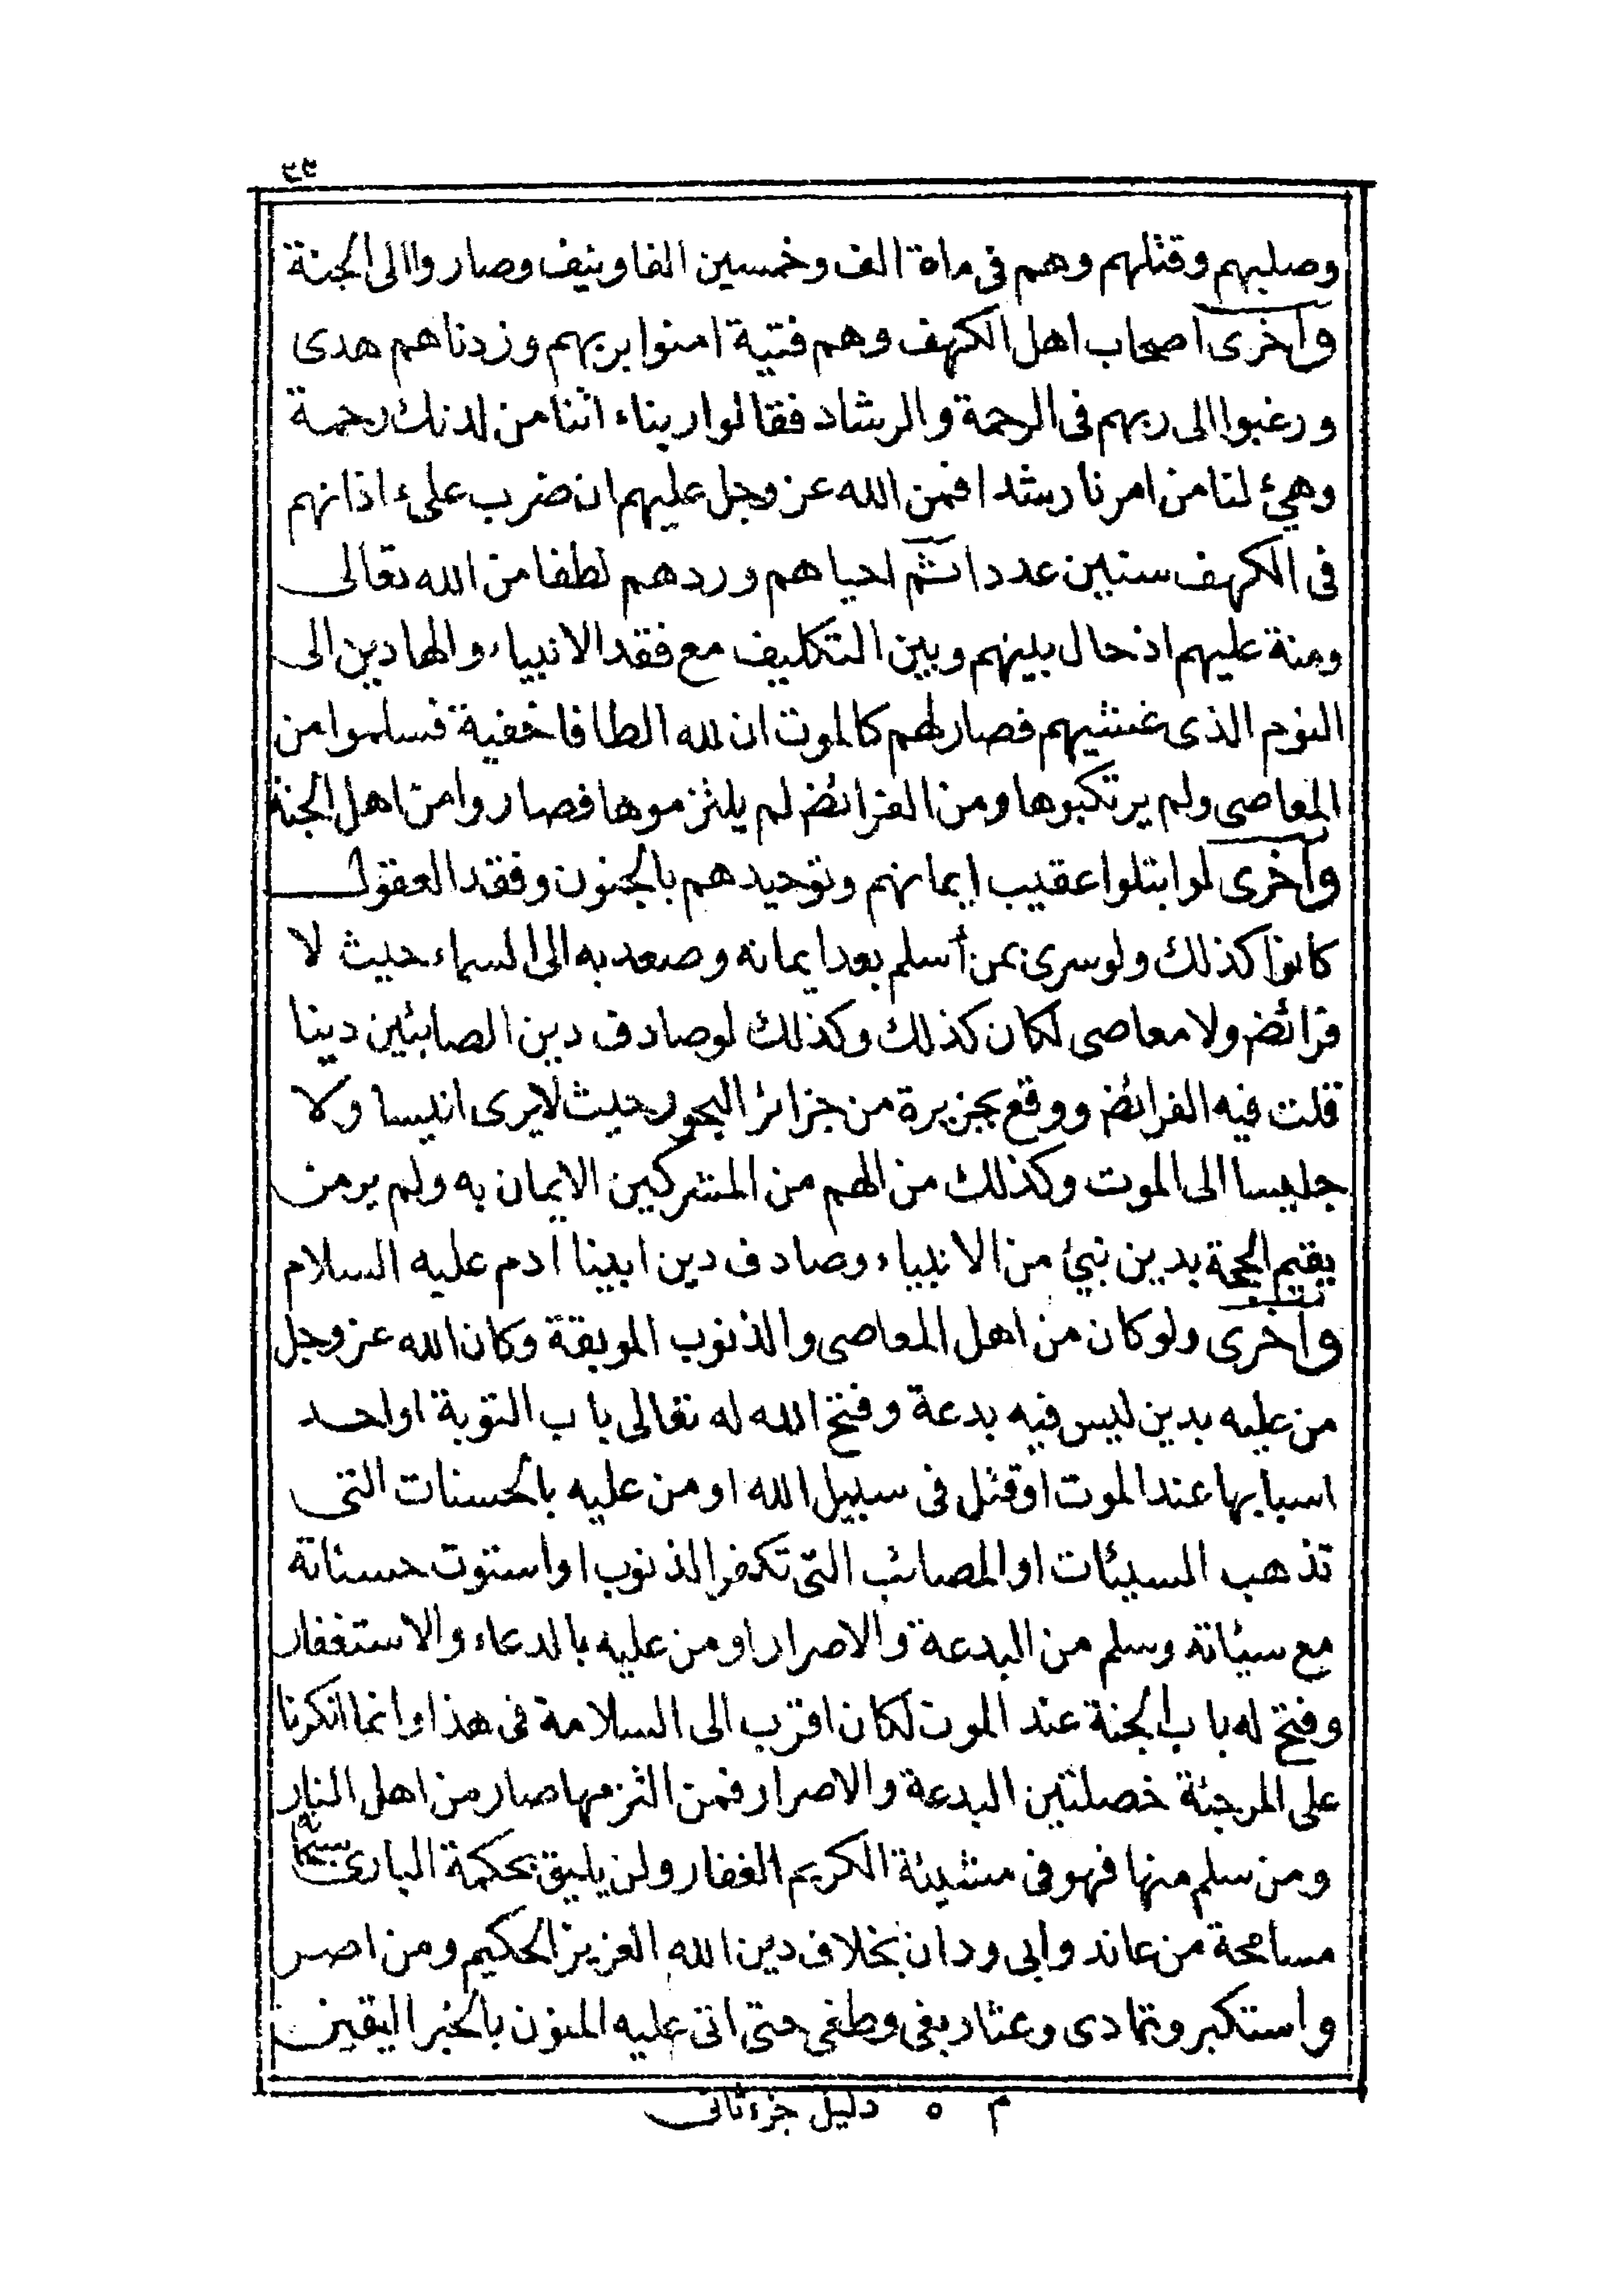 وصلبهم وقتلهم وهم فى ماة الف وخمسين الفا ونيف وصاروا الى الجنة
وأخرى اصحاب اهل الكهف وهم فتية امنوا بربهم وزدناهم هدى
ورغبوا الى ربهم فى الرحمة والرشاد فقالوا ربناء اتنا من لدنك رحمة
وهيئ لنا من امرنا رشدا فمن الله عز وجل عليهم ان ضرب علىء اذانهم
فى الكهف سنين عددا ثم احياهم وردهم لطفا من الله تعالى
ومنة عليهم اذ حال بينهم وبين التكليف مع فقد الانبياء والهادين الى
النوم الذى غشيهم فصار لهم كالموت ان لله الطافا خفية فسلموا من
المعاصى ولم يرتكبوها ومن الفرائض لم يلتزموها فصاروا من اهل الجنة
وأخرى لو ابتلوا عقيب ايمانهم وتوحيدهم بالجنون وفقد العقول
كانوا كذلك ولو سرى بمن أسلم بعد ايمانه وصعد به الى السماء حيث لا
فرائض ولا معاصى لكان كذلك وكذلك لو صادف دين الصابئين دينا
قلت فيه الفرائض ووقع بجزيرة من جزائر البحور حيث لا يرى انيسا ولا
جليسا الى الموت وكذلك من الهم من المشركين الايمان به ولم ير من
يقيم الحجة بدين نبئ من الانبياء وصادف دين ابينا آدم عليه السلام
وأخرى ولو كان من اهل المعاصى والذنوب الموبقة وكان الله عز وجل
من عليه بدين ليس فيه بدعة وفتح الله له تعالى باب التوبة او احد
اسبابها عند الموت او قتل فى سبيل الله او من عليه بالحسنات التى
تذهب السيئات او المصائب التى تكفر الذنوب او استوت حسناته
مع سيئاته وسلم من البدعة والاصرار او من عليه بالدعاء والاستغفار
وفتح له باب الجنة عند الموت لكان اقرب الى السلامة فى هذا وانما انكرنا
على المرجئة خصلتين البدعة والاصرار فمن التزمها صار من اهل النار
ومن سلم منها فهو فى مشيئة الكريم الغفار ولن يليق بحكمة البارئ سبحانه
مسامحة من عاند وابى ودان بخلاف دين الله العزيز الحكيم ومن اصر
واستكبر وتمادى وعثا وبغى وطغى حتى اتى عليه المنون بالخبر اليقين
م ٥ دليل جزء ثانى